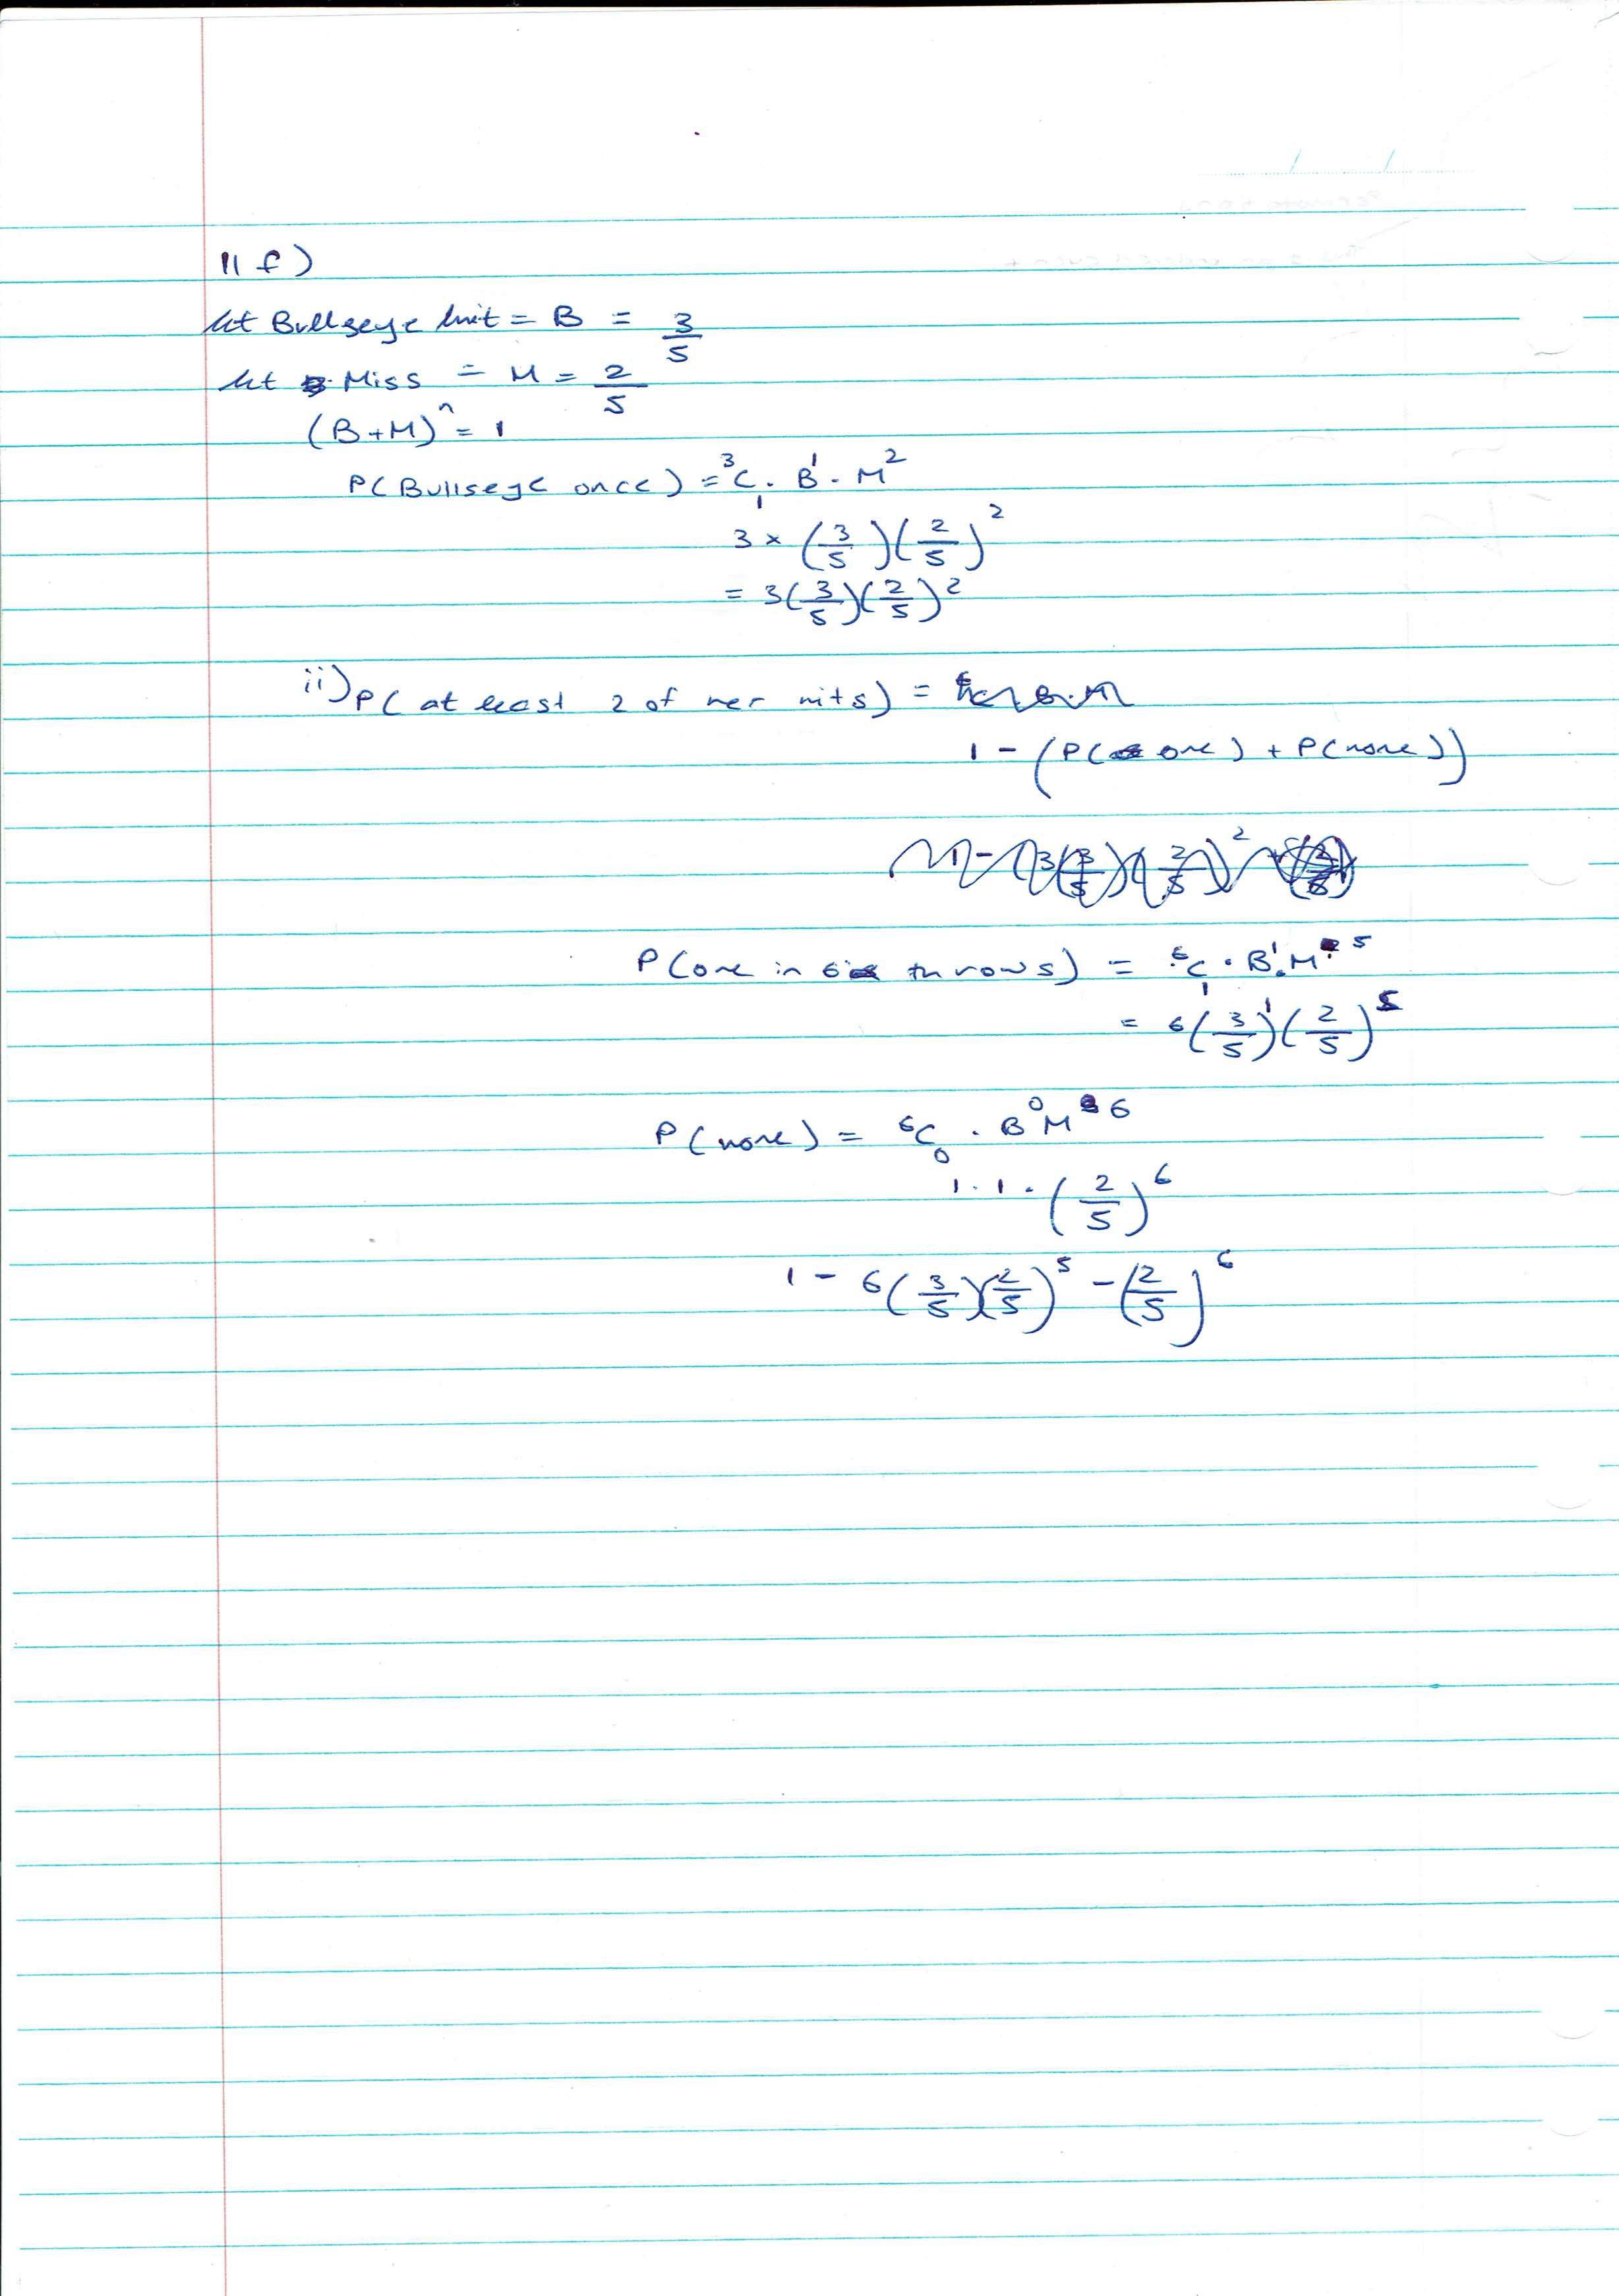 11 f)
let Bullseye hit = B = 3/5
let Miss = M = 2/5
(B+M)^n = 1
P(Bullseye once) = ³C₁ . B¹ . M²
3 × (3/5)(2/5)²
= 3(3/5)(2/5)²
ii) P( at least 2 of her hits) =
1 - (P(one) + P(none))
1 - (3(3/5)(2/5)²
P(one in 6 throws) = ⁶C₁ . B¹. M⁵
= 6(3/5)¹(2/5)⁵
P(none) = ⁶C₀ . B⁰M⁶
1 . 1 . (2/5)⁶
1 - 6(3/5)(2/5)⁵ - (2/5)⁶